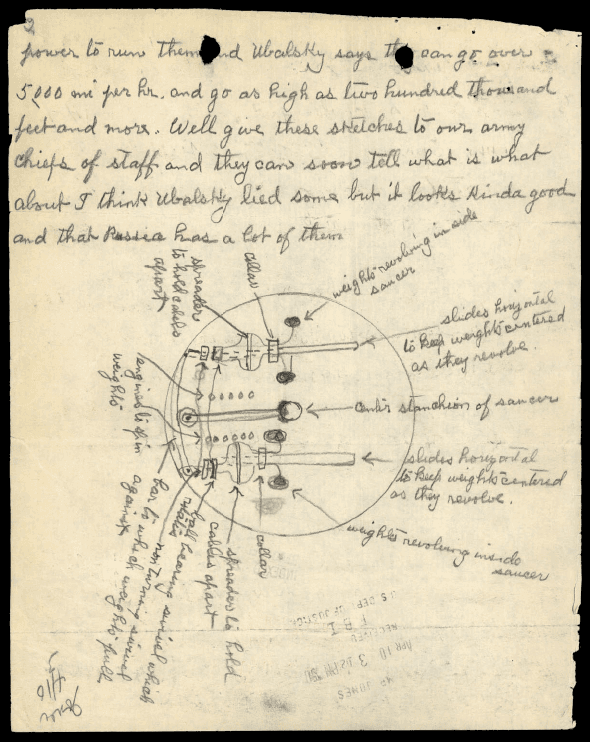 2
power to run them and Ubalsky says they can go over
5,000 mi per hr. and go as high as two hundred thousand
feet and more. Well give these sketches to our army
chiefs of staff and they can soon tell what is what
about I think Ubalsky lied some but it looks kinda good
and that Russia has a lot of them
weights revolving in side
saucer
collar
spreader
to hold cables
apart
slides horizontal
to keep weights centered
as they revolve.
engines to spin
weights
center stanchion of saucer
slides horizontal
to keep weights centered
as they revolve.
weights revolving inside
saucer
collar
spreader to hold
cables apart
ball bearing
non turning swivel which
bar to which turning swivel
against
weights pull
U.S. DEPT OF JUSTICE
F B I
RECEIVED
APR 10 3
4/16